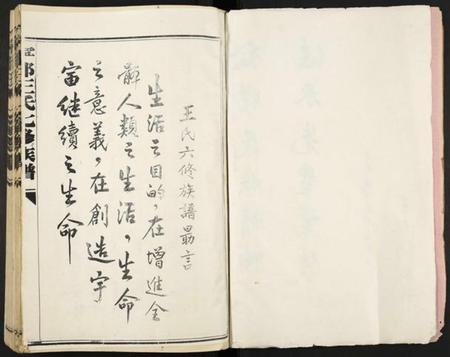 王氏六修族譜勗言
生活之目的,在增進全
體人類之生活,生命
之意義,在創造宇
宙繼續之生命
王氏六修族譜